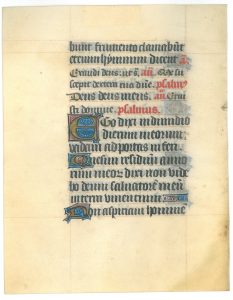 bunt frumento clamabūt
etenim hymnum dicent a̅.
Exaudi deus: ut s̄. añ. Me su
scepit dextera tua dn̄e. psalm9
Deus deus meus. añ. Erui
sti domine. psalmus.
Ego dixi in dimidio
dierum meorum
vadam ad portas inferi.
Quesiui residuū anno
rum meor̄ dixi non vide
bo deum saluatorē meū
in terra viuentium
Non aspiciam hominē